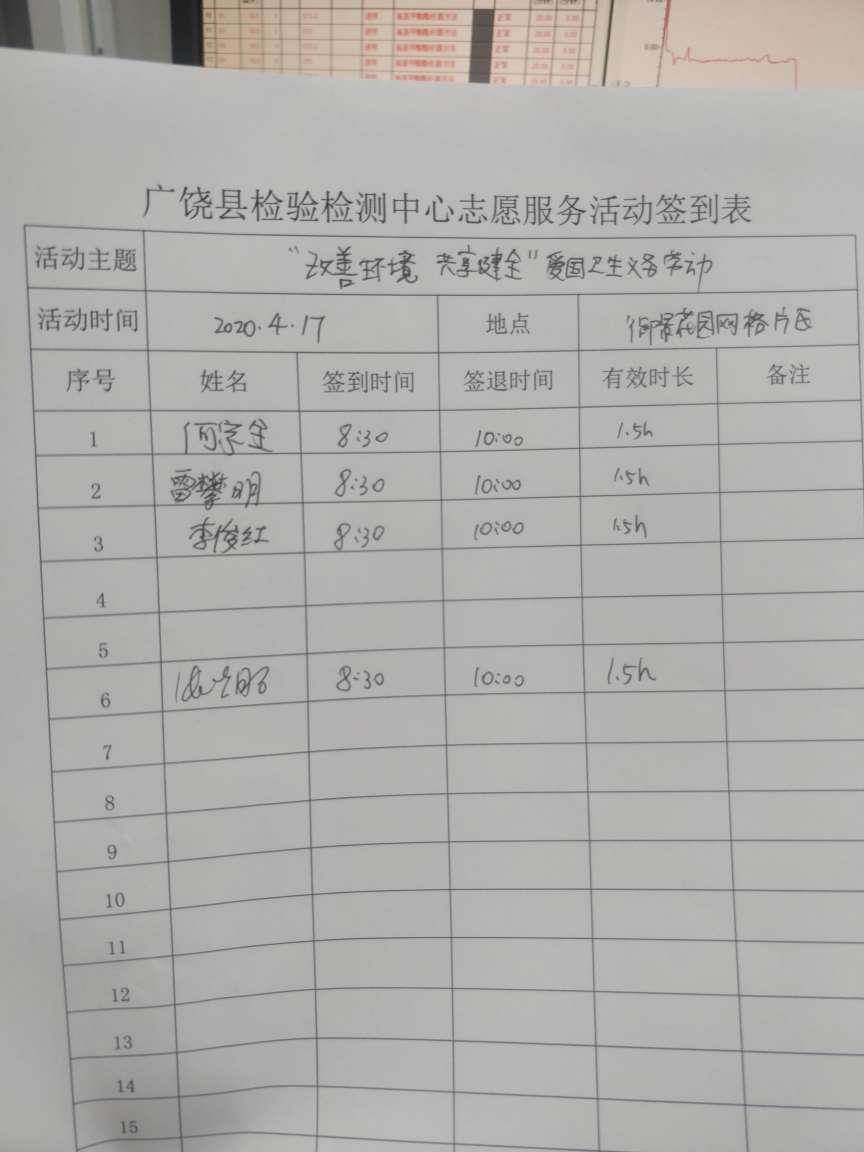 广饶县检验检测中心志愿服务活动签到表
活动主题 "改善环境 共享健全"爱国卫生义务劳动
活动时间 2020.4.17 地点 御景花园网格片区
序号 姓名 签到时间 签退时间 有效时长 备注
1 何宗金 8:30 10:00 1.5h
2 雷攀明 8:30 10:00 1.5h
3 李俊红 8:30 10:00 1.5h
4
5
6 8:30 10:00 1.5h
7
8
9
10
11
12
13
14
15